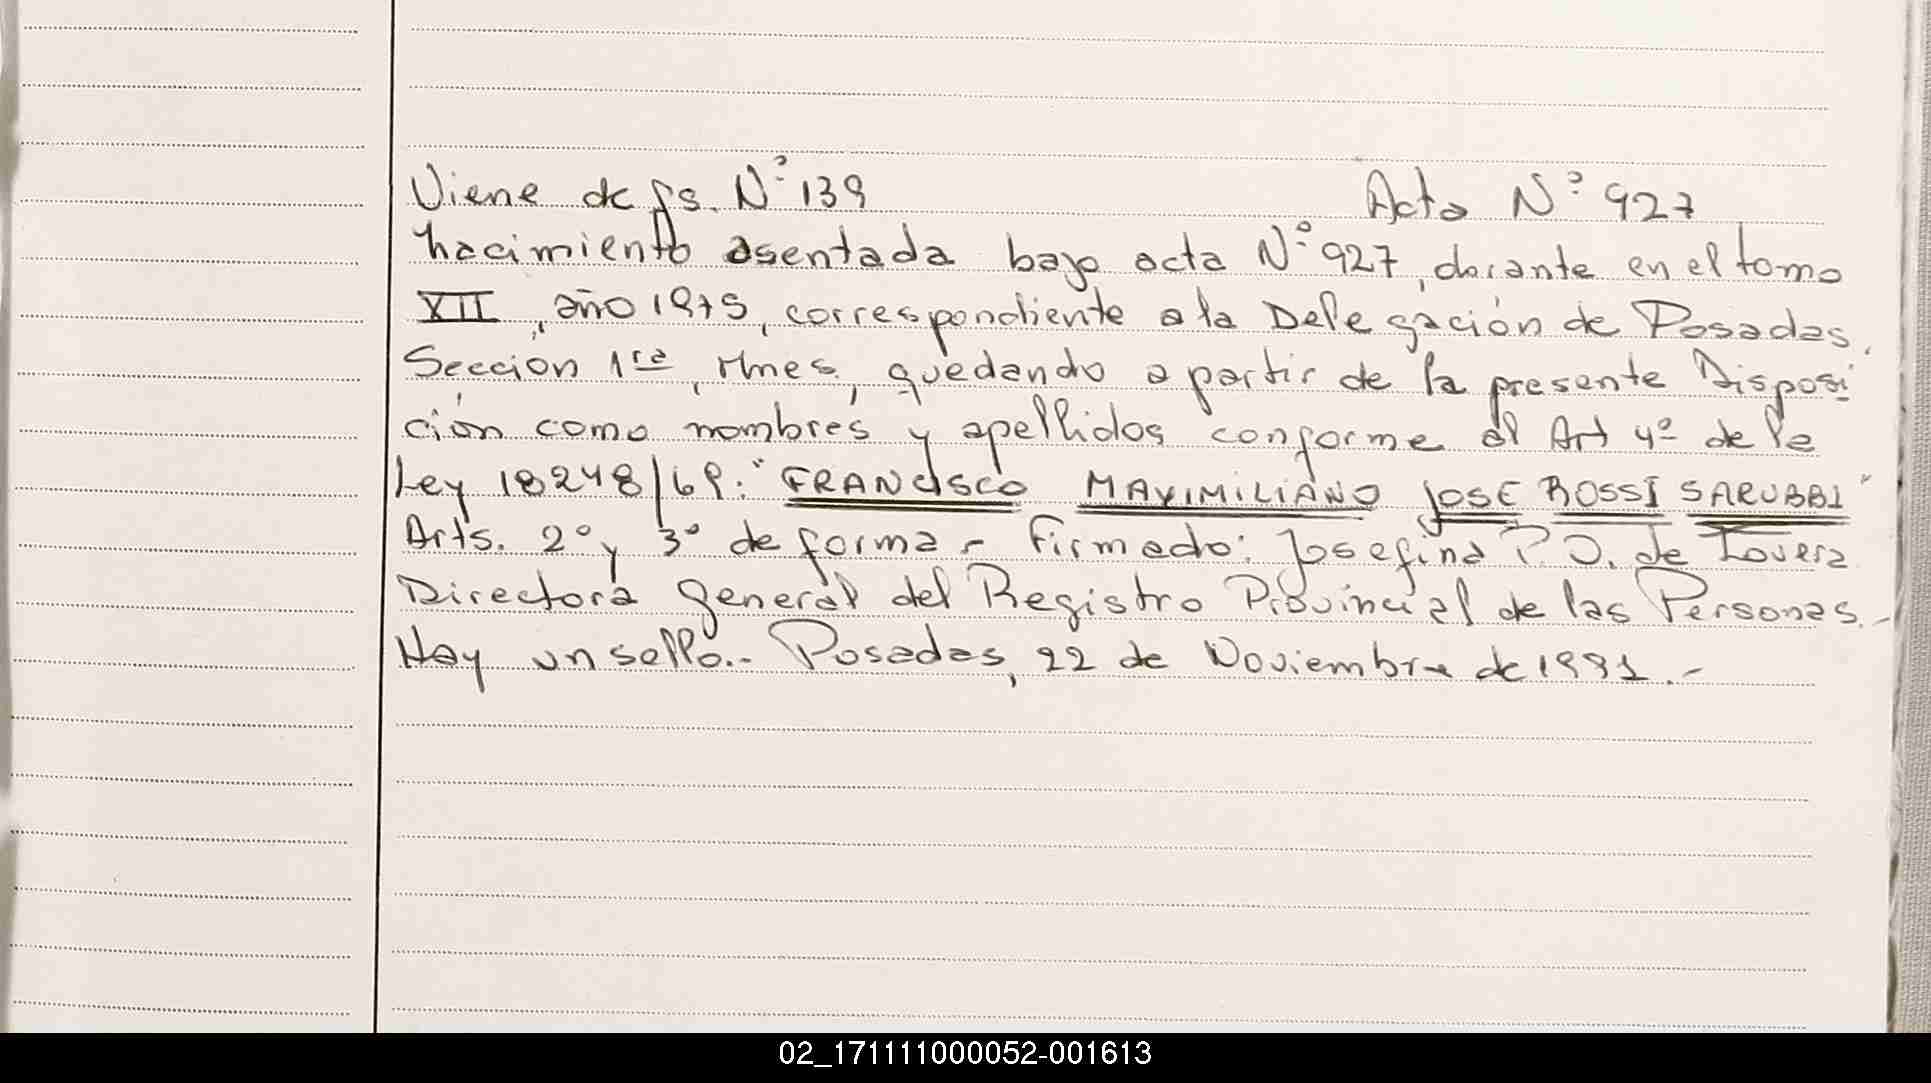 Viene de fs. Nº 139 Acta Nº 927
nacimiento asentada bajo acta Nº 927, obrante en el tomo
XII, año 1975, correspondiente a la Delegación de Posadas,
Sección 1ra, Mnes, quedando a partir de la presente Disposi
ción como nombres y apellidos conforme al Art 4º de la
Ley 18248/69: "FRANCISCO MAXIMILIANO JOSE ROSSI SARUBBI"
Arts. 2º y 3º de forma - Firmado: Josefina P. O. de Lovera
Directora General del Registro Provincial de las Personas.-
Hay un sello.- Posadas, 22 de Noviembre de 1991.-
02_171111000052-001613